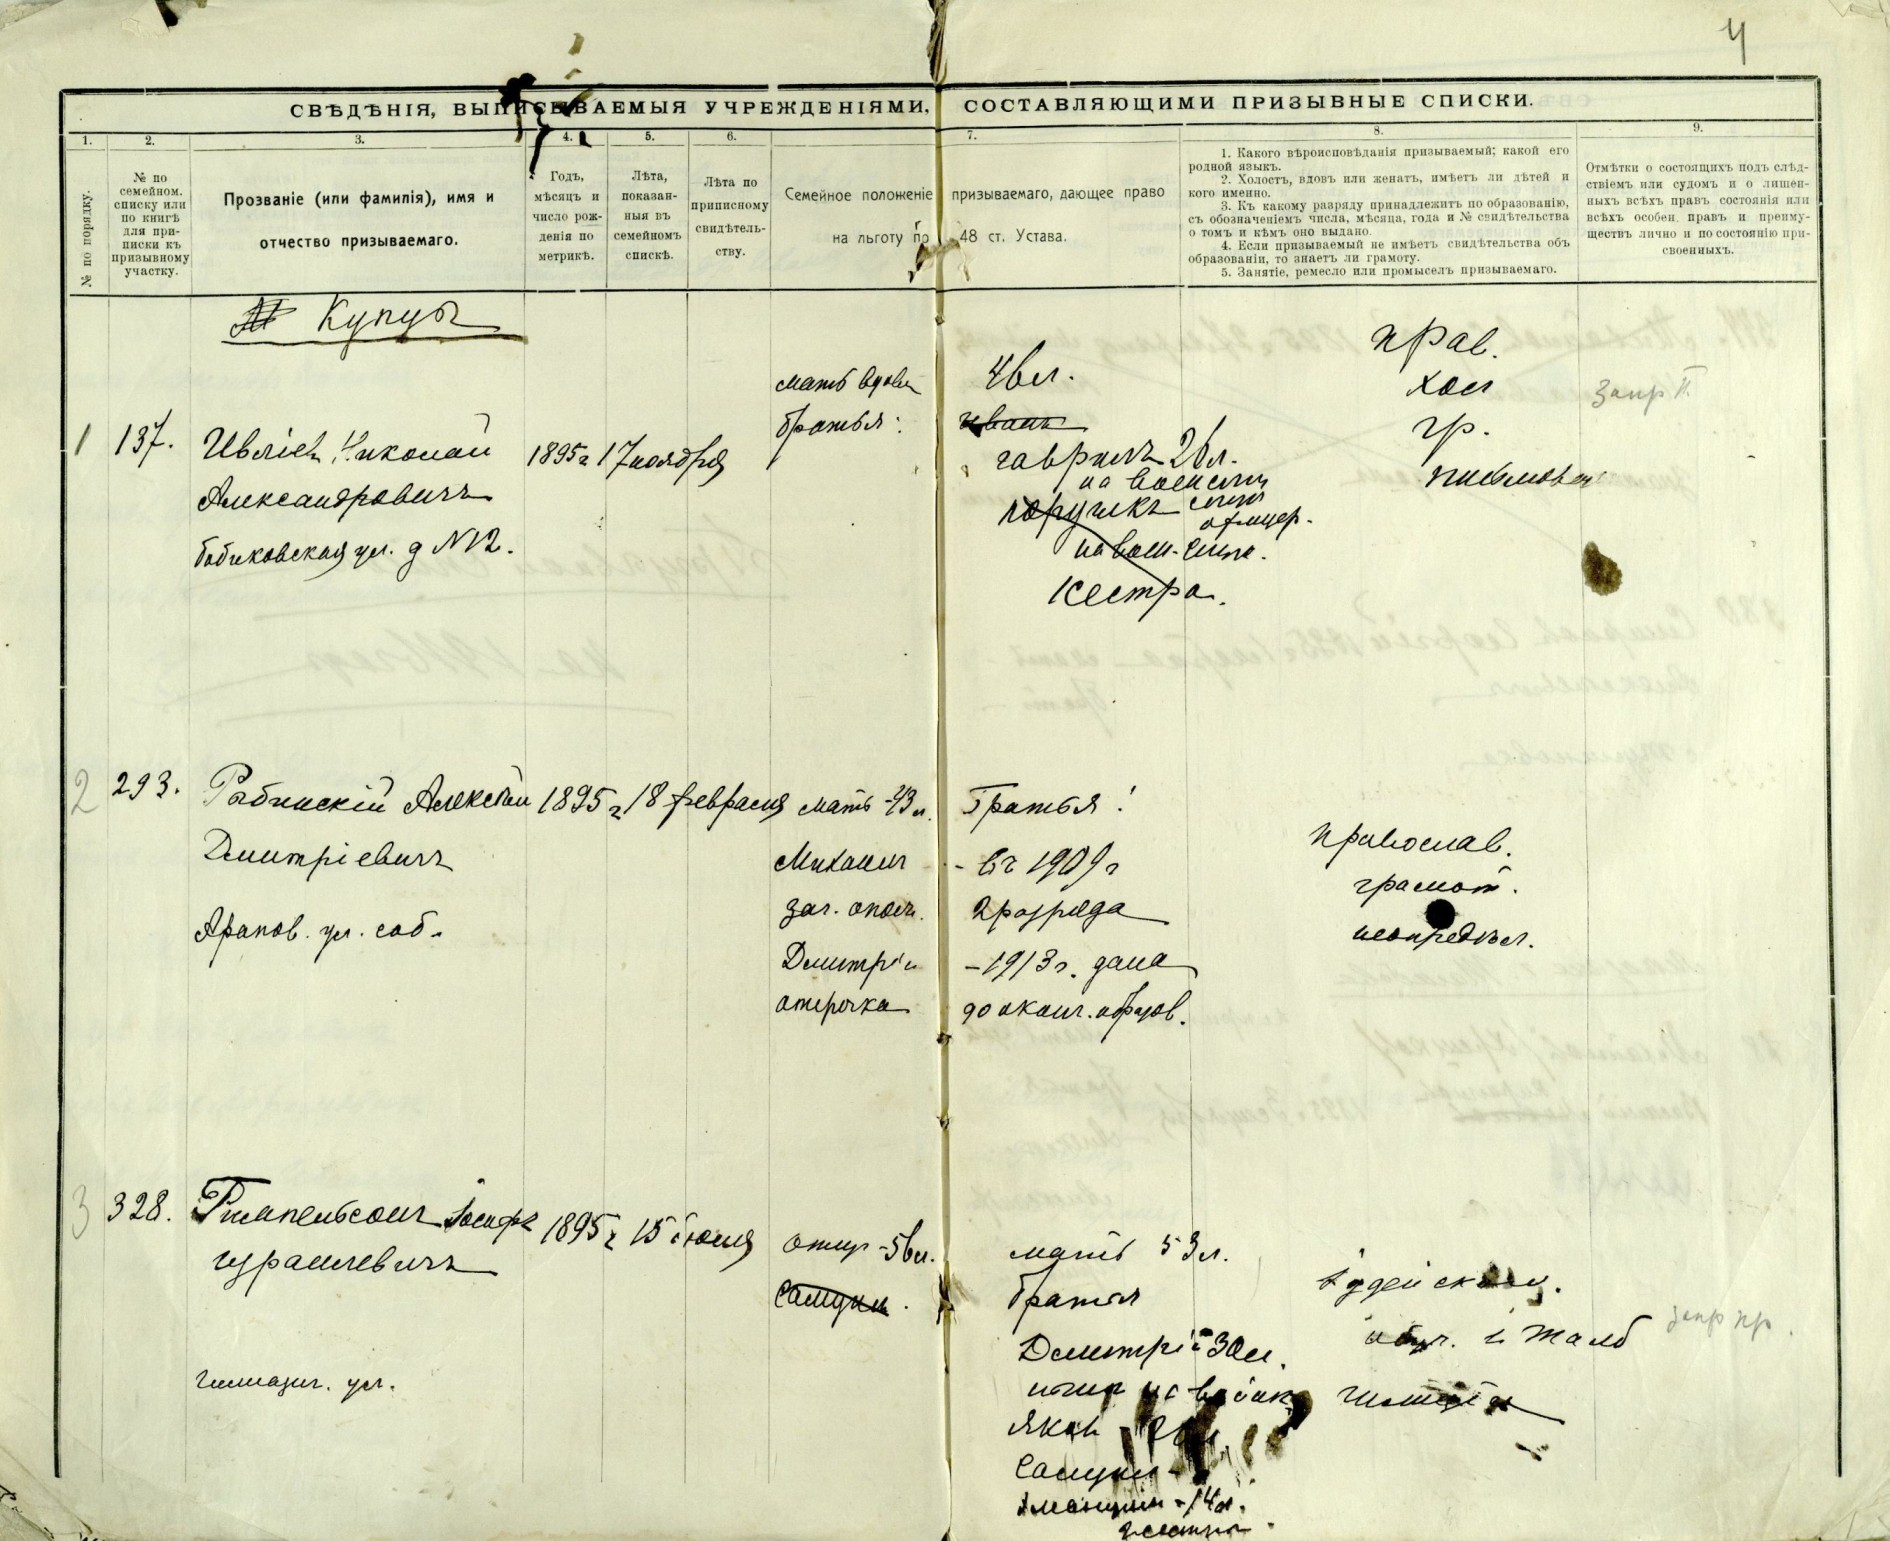 4
СВѢДѢНІЯ, ВЫПИСЫВАЕМЫЯ УЧРЕЖДЕНІЯМИ, СОСТАВЛЯЮЩИМИ ПРИЗЫВНЫЕ СПИСКИ.
1.
№ по порядку.
2.
№ по
семейном.
списку или
по книгѣ
для при-
писки къ
призывному
участку.
3.
Прозваніе (или фамилія), имя и
отчество призываемаго.
4.
Годъ,
мѣсяцъ и
число рож-
денія по
метрикѣ.
5.
Лѣта,
показан-
ныя въ
семейномъ
спискѣ.
6.
Лѣта по
приписному
свидѣтель-
ству.
7.
Семейное положеніе призываемаго, дающее право
на льготу по 48 ст. Устава.
8.
1. Какого вѣроисповѣданія призываемый; какой его
родной языкъ.
2. Холостъ, вдовъ или женатъ, имѣетъ ли дѣтей и
кого именно.
3. Къ какому разряду принадлежитъ по образованію,
съ обозначеніемъ числа, мѣсяца, года и № свидѣтельства
о томъ и кѣмъ оно выдано.
4. Если призываемый не имѣетъ свидѣтельства объ
образованіи, то знаетъ ли грамоту.
5. Занятіе, ремесло или промыселъ призываемаго.
9.
Отмѣтки о состоящихъ подъ слѣд-
ствіемъ или судомъ и о лишен-
ныхъ всѣхъ правъ состоянія или
всѣхъ особен. правъ и преиму-
ществъ лично и по состоянію при-
своенныхъ.
Купцы
1 137. Ивлiев Николай
Александровичъ
бабиковская ул. д №12.
1895 г 17 ноября
мать вдова
братья:
Иванъ
гаврилъ 26 л.
поручикъ
офицер.
1 сестра.
прав.
хол
гр.
запр П.
2 293. Рыбинскій Алексѣй
Дмитріевичъ
Арапов. ул. соб.
1895 г 18 февраля
мать 43 л. Братья:
Михаилъ - въ 1909 г
зач. ополч. 2 разряда
Дмитрій - 1913 г. дана
отсрочка до оконч. образов.
православ.
грамот.
неопредѣл.
3 328. Іосифъ
Израилевичъ
гимназич. ул.
1895 г 15 іюля
отцу - 56 л. мать 53 л.
Самуил. братья
Дмитрій 30 л.
Яков
Самуил -
- 14 л.
2 сестры.
іудейскаго.
запр пр.